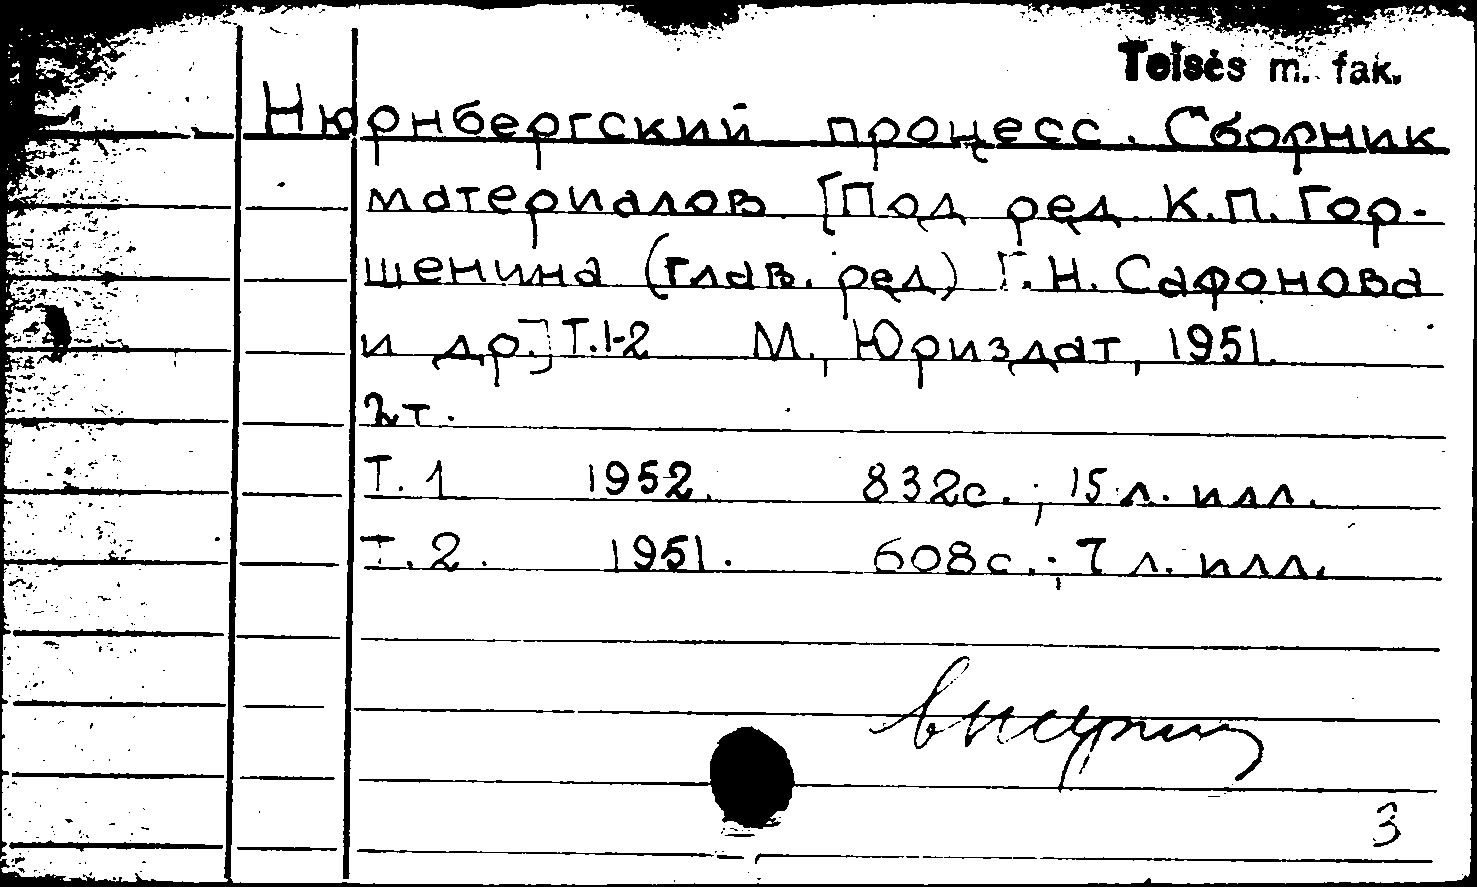 Teisės m. fak.
Нюрнбергский процесс. Сборник
материалов [Под ред. К.П. Гор-
шенина (глав. ред) Г.Н. Сафонова
и др.] Т.1-2 М., Юриздат, 1951.
2т.
Т. 1 1952. 832с.; 15 л. илл.
Т. 2. 1951. 608с.; 7 л. илл.
3